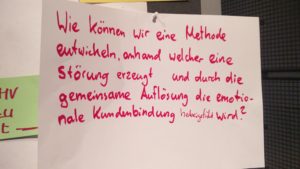 Wie können wir eine Methode
entwickeln, anhand welcher eine
Störung erzeugt und durch die
gemeinsame Auflösung die emotio-
nale Kundenbindung wird?
HV
zu
t